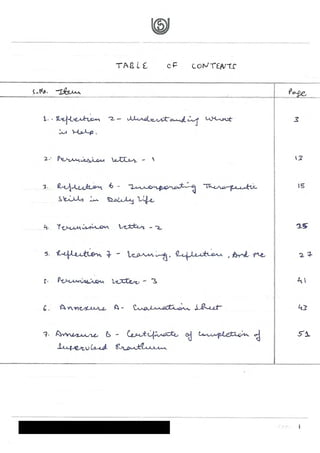 TABLE OF CONTENTS
S.No. Item Page
1. Reflection 2 - Understanding What 3
is Help.
2. Permission letter - 1 13
3. Reflection 6 - Incorporating Therapeutic 15
Skills in Daily Life
4. Permission Letter - 2 25
5. Reflection 7 - Learning, Reflection, And Me 27
5. Permission Letter - 3 41
6. Annexure A - Evaluation Sheet 43
7. Annexure B - Certificate of Completion of 51
Supervised Practicum
1